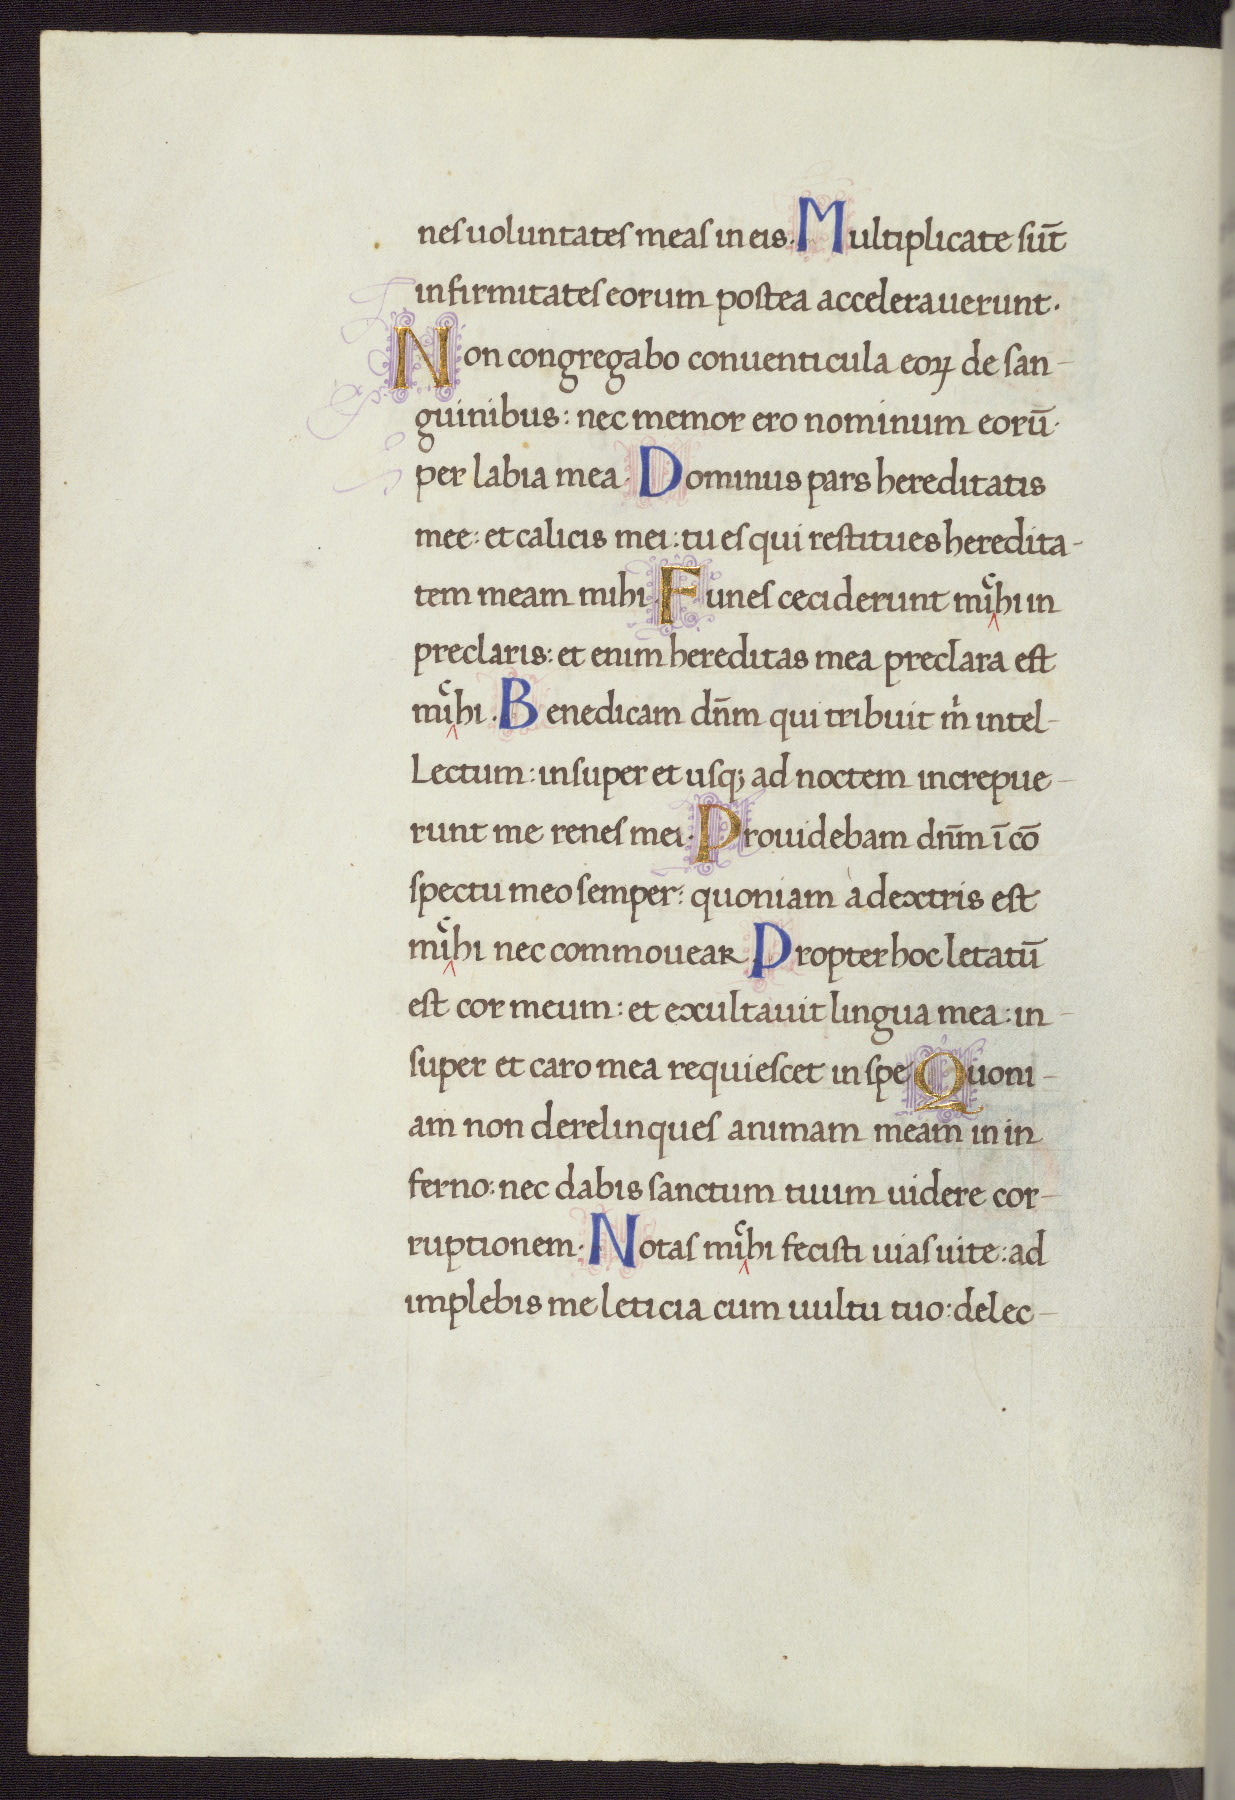 nes uoluntates meas in eis. Multiplicate sūt
infirmitates eorum postea accelerauerunt.
Non congregabo conuenticula eoꝝ de san-
guinibus: nec memor ero nominum eorū.
per labia mea. Dominus pars hereditatis
mee: et calicis mei: tu es qui restitues heredita-
tem meam mihi. Funes ceciderunt micͨhi in
preclaris: et enim hereditas mea preclara est
miͨhi. Benedicam dn̄m qui tribuit m̍ intel-
Lectum: insuper et usqꝫ ad noctem increpue-
runt me renes mei. Prouidebam dn̄m ī cō
spectu meo semper: quoniam à dextris est
miͨhi nec commouear. Propter hoc letatū
est cor meum: et exultauit lingua mea: in-
super et caro mea requiescet in spe Quoni-
am non derelinques animam meam in in
ferno: nec dabis sanctum tuum uidere cor-
ruptionem. Notas miͨhi fecisti uias uite: ad
implebis me leticia cum uultu tuo: delec-